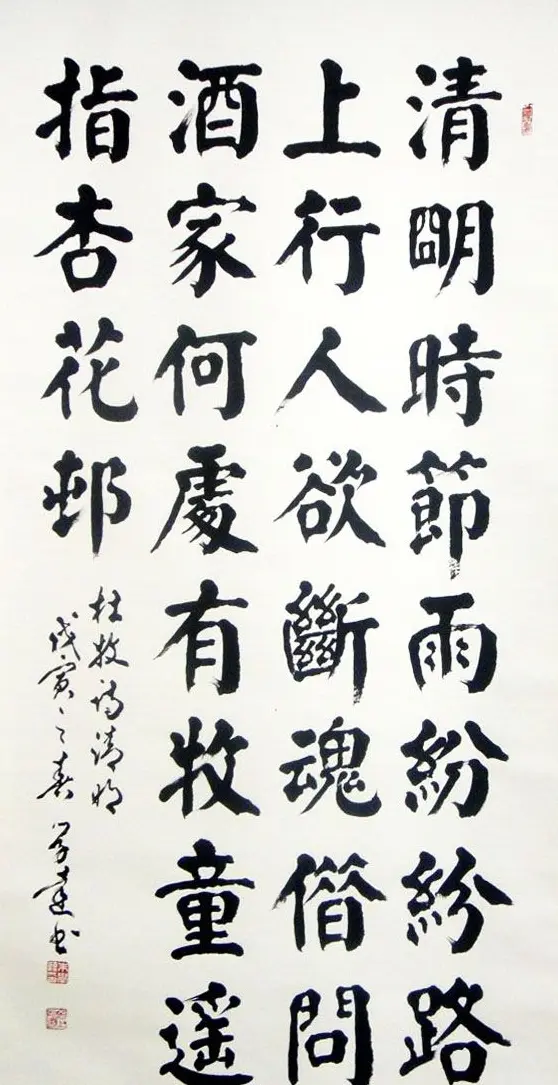 清明時節雨紛紛路
上行人欲斷魂偣問
酒家何處有牧童遥
指杏花邨
杜牧诗清明
戊寅之春学達书